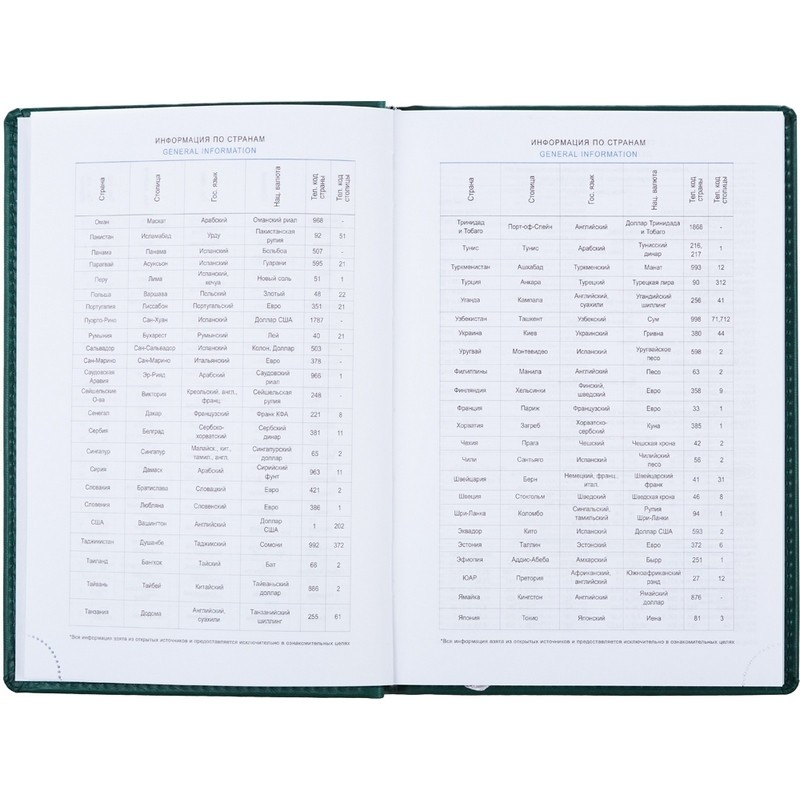 ИНФОРМАЦИЯ ПО СТРАНАМ
GENERAL INFORMATION
Страна Столица Гос. язык Нац. валюта Тел. код страны Тел. код столицы
Оман Маскат Арабский Оманский риал 968 -
Пакистан Исламабад Урду Пакистанская рупия 92 51
Панама Панама Испанский Бальбоа 507 -
Парагвай Асунсьон Испанский Гуарани 595 21
Перу Лима Испанский, кечуа Новый соль 51 1
Польша Варшава Польский Злотый 48 22
Португалия Лиссабон Португальский Евро 351 21
Пуэрто-Рико Сан-Хуан Испанский Доллар США 1787 -
Румыния Бухарест Румынский Лей 40 21
Сальвадор Сан-Сальвадор Испанский Колон, Доллар 503 -
Сан-Марино Сан-Марино Итальянский Евро 378 -
Саудовская Аравия Эр-Рияд Арабский Саудовский риал 966 1
Сейшельские О-ва Виктория Креольский, англ., франц. Сейшельская рупия 248 -
Сенегал Дакар Французский Франк КФА 221 8
Сербия Белград Сербско-хорватский Сербский динар 381 11
Сингапур Сингапур Малайск., кит., тамил., англ. Сингапурский доллар 65 2
Сирия Дамаск Арабский Сирийский фунт 963 11
Словакия Братислава Словацкий Евро 421 2
Словения Любляна Словенский Евро 386 1
США Вашингтон Английский Доллар США 1 202
Таджикистан Душанбе Таджикский Сомони 992 372
Таиланд Бангкок Тайский Бат 66 2
Тайвань Тайбэй Китайский Тайваньский доллар 886 2
Танзания Додома Английский, суахили Танзанийский шиллинг 255 61
*Вся информация взята из открытых источников и предоставляется исключительно в ознакомительных целях
ИНФОРМАЦИЯ ПО СТРАНАМ
GENERAL INFORMATION
Страна Столица Гос. язык Нац. валюта Тел. код страны Тел. код столицы
Тринидад и Тобаго Порт-оф-Спейн Английский Доллар Тринидада и Тобаго 1868 -
Тунис Тунис Арабский Тунисский динар 216, 217 1
Туркменистан Ашхабад Туркменский Манат 993 12
Турция Анкара Турецкий Турецкая лира 90 312
Уганда Кампала Английский, суахили Угандийский шиллинг 256 41
Узбекистан Ташкент Узбекский Сум 998 71,712
Украина Киев Украинский Гривна 380 44
Уругвай Монтевидео Испанский Уругвайское песо 598 2
Филиппины Манила Английский Песо 63 2
Финляндия Хельсинки Финский, шведский Евро 358 9
Франция Париж Французский Евро 33 1
Хорватия Загреб Хорватско-сербский Куна 385 1
Чехия Прага Чешский Чешская крона 42 2
Чили Сантьяго Испанский Чилийский песо 56 2
Швейцария Берн Немецкий, франц., итал. Швейцарский франк 41 31
Швеция Стокгольм Шведский Шведская крона 46 8
Шри-Ланка Коломбо Сингальский, тамильский Рупия Шри-Ланки 94 1
Эквадор Кито Испанский Доллар США 593 2
Эстония Таллин Эстонский Евро 372 6
Эфиопия Аддис-Абеба Амхарский Бырр 251 1
ЮАР Претория Африканский, английский Южноафриканский рэнд 27 12
Ямайка Кингстон Английский Ямайский доллар 876 -
Япония Токио Японский Иена 81 3
*Вся информация взята из открытых источников и предоставляется исключительно в ознакомительных целях